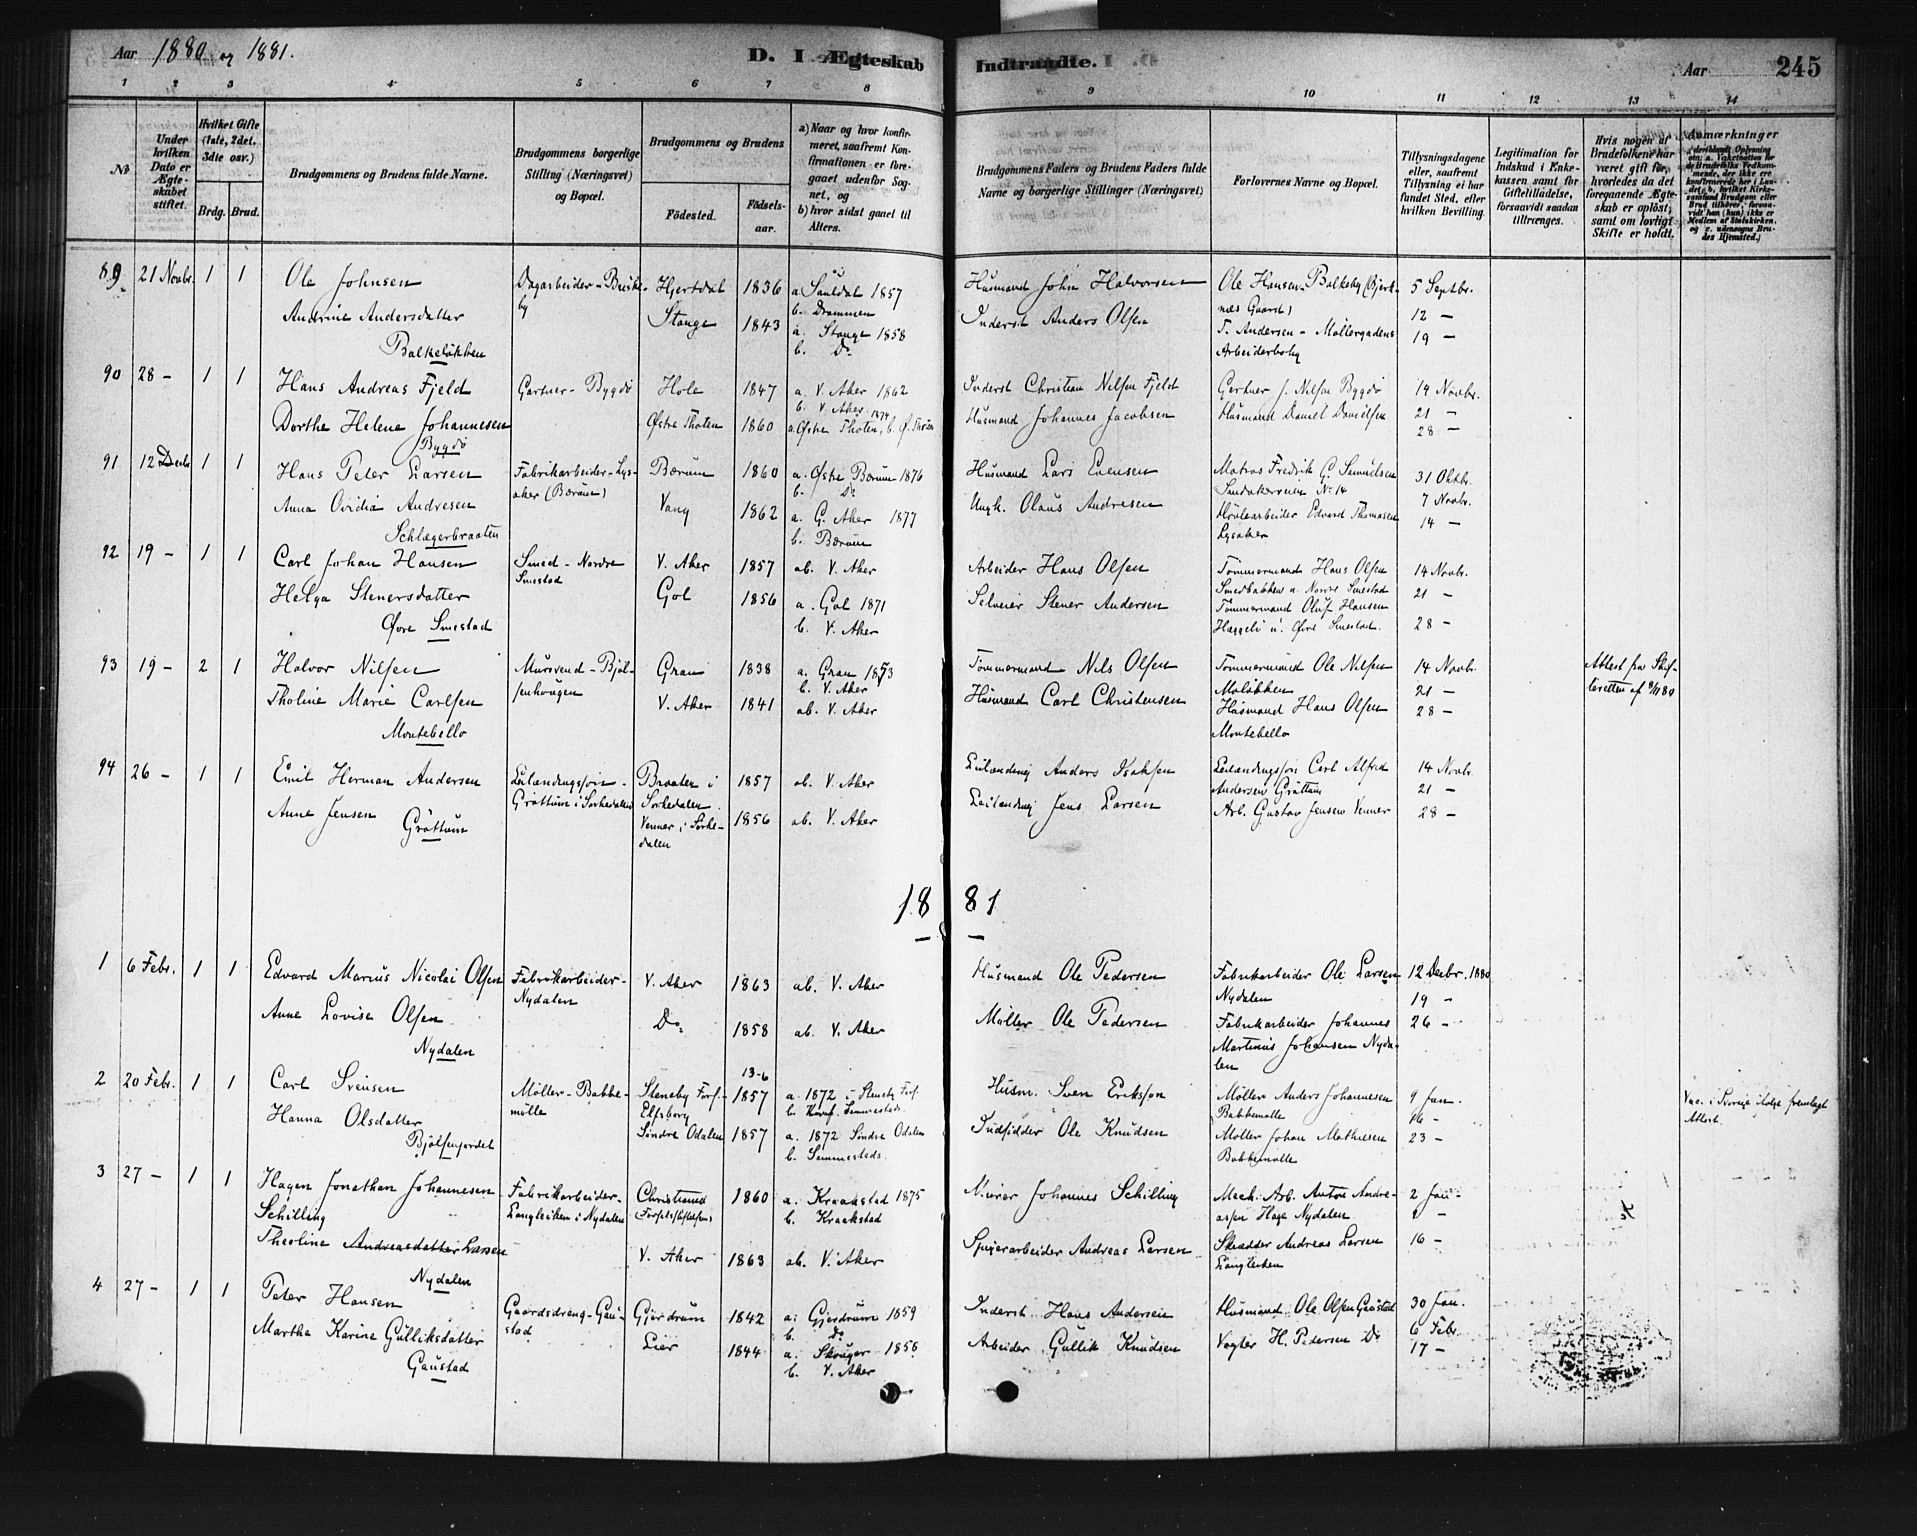 Aar 1880 og 1881.
D. I Ægteskab Indtraadte.
Aar 245
1 2 3 4 5 6 7 8 9 10 11 12 13 14
№
Under hvilken Dato er Ægteskabet stiftet.
Hvilket Gifte (1ste, 2det, 3die osv.)
Brdg. Brud.
Brudgommens og Brudens fulde Navne.
Brudgommens borgerlige Stilling (Næringsvei) og Bopæl.
Brudgommens og Brudens
Födested.
Födselsaar.
a) Naar og hvor konfirmeret, saafremt Konfirmationen er foregaaet udenfor Sognet, og
b) hvor sidst gaaet til Alters.
Brudgommens Faders og Brudens Faders fulde Navne og borgerlige Stillinger (Næringsvei)
Forlovernes Navne og Bopæl.
Tillysningsdagene eller, saafremt Tillysning ei har fundet Sted, efter hvilken Bevilling.
Legitimation for Indskud i Enkekassen samt for Giftetilladelse, forsaavidt saadan tiltrænges.
Hvis nogen af Brudefolkene har været gift för, hvorledes da det foregaaende Ægteskab er oplöst; samt om lovligt Skifte er holdt.
Anmærkninger
89. 21 Novbr. 1 1 Ole Johnsen Dagarbeider - Briskeby Hjertdal 1836 a. Sauldal 1857 b. Drammen Husmand John Halvorsen Ole Hansen - Balkeby (Bjerknæs Gaard) 5 Septbr.
Andrine Andersdatter Stange 1843 a. Stange 1858 b. Do Inderst Anders Olsen T. Andersen - Møllergadens Arbeiderbolig 12 - 19 -
Balkeløkken
90 28 - 1 1 Hans Andreas Fjeld Gartner - Bygdø Hole 1847 a. V. Aker 1862 b. V. Aker Inderst Christian Nilsen Fjeld Gartner J. Nilsen Bygdø 14 Novbr.
Dorthe Helene Johannesen Østre Thoten 1860 a. Østre Thoten 1874, b. Ø. Thoten Husmand Johannes Jacobsen Husmand Daniel Danielsen 21 - 28 -
Bygdø
91 12 Decbr 1 1 Hans Peter Larsen Fabrikarbeider - Lysaker (Bærum) Bærum 1860 a. Østre Bærum 1876 b. Do Husmand Lars Evensen Matros Fredrik G. Samuelsen Sandakerveien No 14 31 Oktbr.
Anna Ovidia Andresen Vang 1862 a. G. Aker 1877 b. Bærum Ungk. Olaus Andresen Høvlearbeider Edvard Thomasen Lysaker 7 Novbr. 14 -
Schlægerbraaten
92 19 - 1 1 Carl Johan Hansen Smed - Nordre Smestad V. Aker 1857 ab. V. Aker Arbeider Hans Olsen Tømmermand Hans Olsen Smedbakken u. Nordre Smestad 14 Novbr.
Helga Stenersdatter Gol 1856 a. Gol 1871 b. V. Aker Selveier Stener Andersen Tømmermand Oluf Hansen Haggeli u. Øvre Smestad. 21 - 28 -
Øvre Smestad
93 19 - 2 1 Halvor Nilsen Mursvend - Bjølsenhougen Gran 1838 a. Gran 1853 b. V. Aker Tømmermand Nils Olsen Tømmermand Ole Nilsen Moløkken 14 Novbr. Attest fra Skifteretten af 9/11 80
Tholine Marie Carlsen V. Aker 1841 ab. V. Aker Husmand Carl Christensen Husmand Hans Olsen Montebello 21 - 28 -
Montebello
94 26 - 1 1 Emil Herman Andersen Leilændingssøn - Grøttum i Sørkedalen Braaten i Sørkedalen 1857 ab. V. Aker Leilænding Anders Isaksen Leilændingssøn Carl Alfred Andersen Grøttum 14 Novbr.
Anne Jensen Venner i Sørkedalen 1856 ab. V. Aker Leilænding Jens Larsen Arb. Gustav Jensen Venner 21 - 28 -
Grøttum
1881
1 6 Febr. 1 1 Edvard Marius Nicolai Olsen Fabrikarbeider - Nydalen V. Aker 1863 ab. V. Aker Husmand Ole Pedersen Fabrikarbeider Ole Larsen Nydalen 12 Decbr. 1880
Anne Lovise Olsen Do 1858 ab. V. Aker Møller Ole Pedersen Fabrikarbeider Johannes Martinius Johansen Nydalen 19 - 26 -
Nydalen
2 20 Febr. 1 1 Carl Svensen Møller - Bakkemølle Steneby Fors. Elfsborg 13-6 1857 a. 1872 i Steneby Fors. b. Sammesteds. Husm. Sven Eriksson Møller Anders Johannesen Bakkemølle 9 Jan. Vac. i Sverige ifølge fremlagt Attest.
Hanna Olsdatter Søndre Odalen 1857 a. 1872 Søndre Odalen b. Sammesteds. Indsidder Ole Knudsen Møller Johan Mathiesen Bakkemølle 16 - 23 -
Bjølsenjordet
3 27 - 1 1 Hagen Jonathan Johannesen Schilling Fabrikarbeider - Langleiken i Nydalen Christiania 1860 a. Kraakstad 1875 b. Kraakstad Murer Johannes Schilling Mech. Arb. Anton Andreasen Hage Nydalen 2 Jan -
Theoline Andreasdatter Larsen V. Aker 1863 ab. V. Aker Spigerarbeider Andreas Larsen Skrædder Andreas Larsen Langleiken 9 - 16 -
Nydalen
4 27 - 1 1 Peter Hansen Gaardsdreng - Gaustad Gjerdrum 1842 a. Gjerdrum 1859 b. Do Inderst Hans Andersen Husmand Ole Olsen Gaustad 30 Jan.
Marthe Karine Gulliksdatter Lier 1844 a. Skouger 1856 b. V. Aker Arbeider Gullik Knudsen Vogter H. Pedersen Do 6 Febr. 17 -
Gaustad